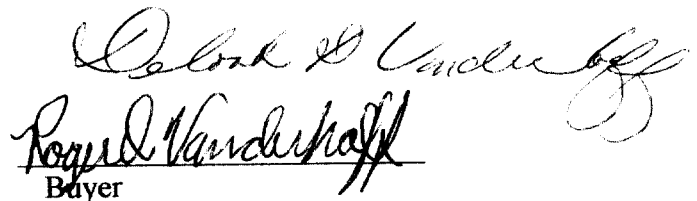 Deborah D Vanderhoff
Roger D Vanderhoff
Buyer